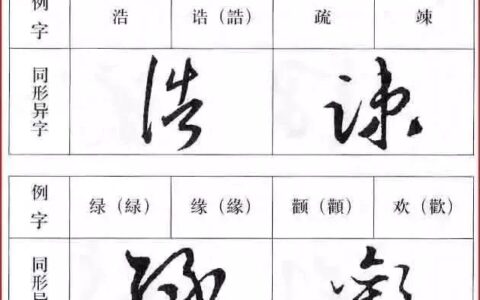 例字 浩 诰（誥） 疏 竦
同形异字
例字 绿（緑） 缘（緣） 颧（顴） 欢（歡）
同形异